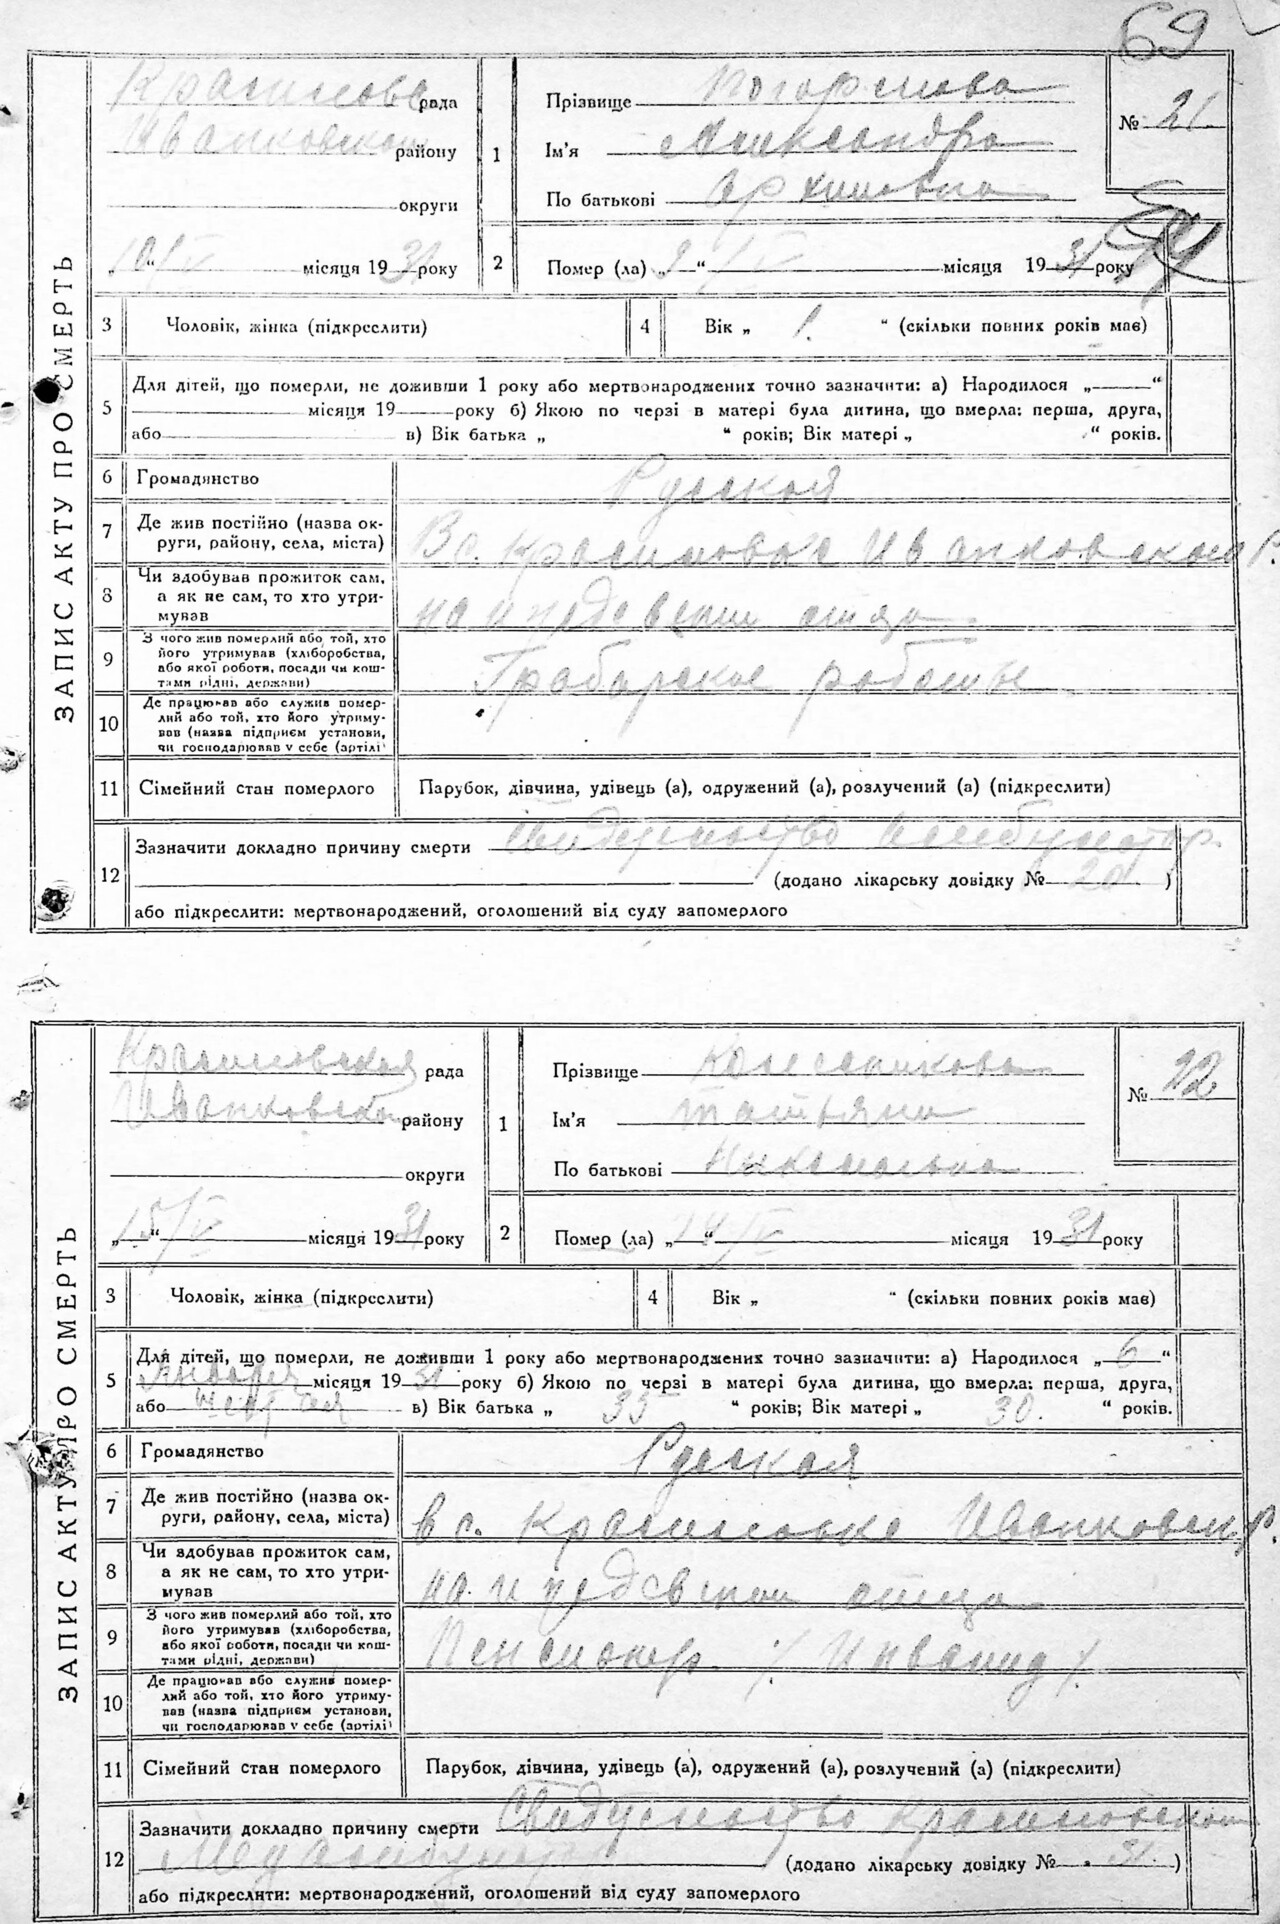 69
ЗАПИС АКТУ ПРО СМЕРТЬ
рада
району
округи
„10“ IV місяця 1931 року
1
Прізвище
Ім'я Александра
По батькові Архиповна
№ 21
2
Помер (ла) „9“ IV місяця 1931 року
3
Чоловік, жінка (підкреслити)
4
Вік „ 1 “ (скільки повних років має)
5
Для дітей, що померли, не доживши 1 року або мертвонароджених точно зазначити: а) Народилося „ “
місяця 19 року б) Якою по черзі в матері була дитина, що вмерла: перша, друга,
або в) Вік батька „ “ років; Вік матері „ “ років.
6
Громадянство Русская
7
Де жив постійно (назва ок-
руги, району, села, міста)
В с.
8
Чи здобував прожиток сам,
а як не сам, то хто утри-
мував
на иждевении отца
9
З чого жив померлий або той, хто
його утримував (хліборобства,
або якої роботи, посади чи кош-
тами рідні, держави)
Грабарские работы
10
Де працював або служив помер-
лий або той, хто його утриму-
вав (назва підприєм установи,
чи господарював у себе (артілі)
11
Сімейний стан померлого
Парубок, дівчина, удівець (а), одружений (а), розлучений (а) (підкреслити)
12
Зазначити докладно причину смерти
(додано лікарську довідку № 20 )
або підкреслити: мертвонароджений, оголошений від суду запомерлого
ЗАПИС АКТУ ПРО СМЕРТЬ
рада
району
округи
„15“ IV місяця 1931 року
1
Прізвище Колесникова
Ім'я Татьяна
По батькові Николаевна
№ 22
2
Помер (ла) „14“ IV місяця 1931 року
3
Чоловік, жінка (підкреслити)
4
Вік „ “ (скільки повних років має)
5
Для дітей, що померли, не доживши 1 року або мертвонароджених точно зазначити: а) Народилося „6“
Января місяця 1931 року б) Якою по черзі в матері була дитина, що вмерла: перша, друга,
або в) Вік батька „ 35 “ років; Вік матері „ 30. “ років.
6
Громадянство Русская
7
Де жив постійно (назва ок-
руги, району, села, міста)
в с.
8
Чи здобував прожиток сам,
а як не сам, то хто утри-
мував
на иждевении отца
9
З чого жив померлий або той, хто
його утримував (хліборобства,
або якої роботи, посади чи кош-
тами рідні, держави)
Пенсионер / Инвалид /.
10
Де працював або служив помер-
лий або той, хто його утриму-
вав (назва підприєм установи,
чи господарював у себе (артілі)
11
Сімейний стан померлого
Парубок, дівчина, удівець (а), одружений (а), розлучений (а) (підкреслити)
12
Зазначити докладно причину смерти
(додано лікарську довідку № 31. )
або підкреслити: мертвонароджений, оголошений від суду запомерлого